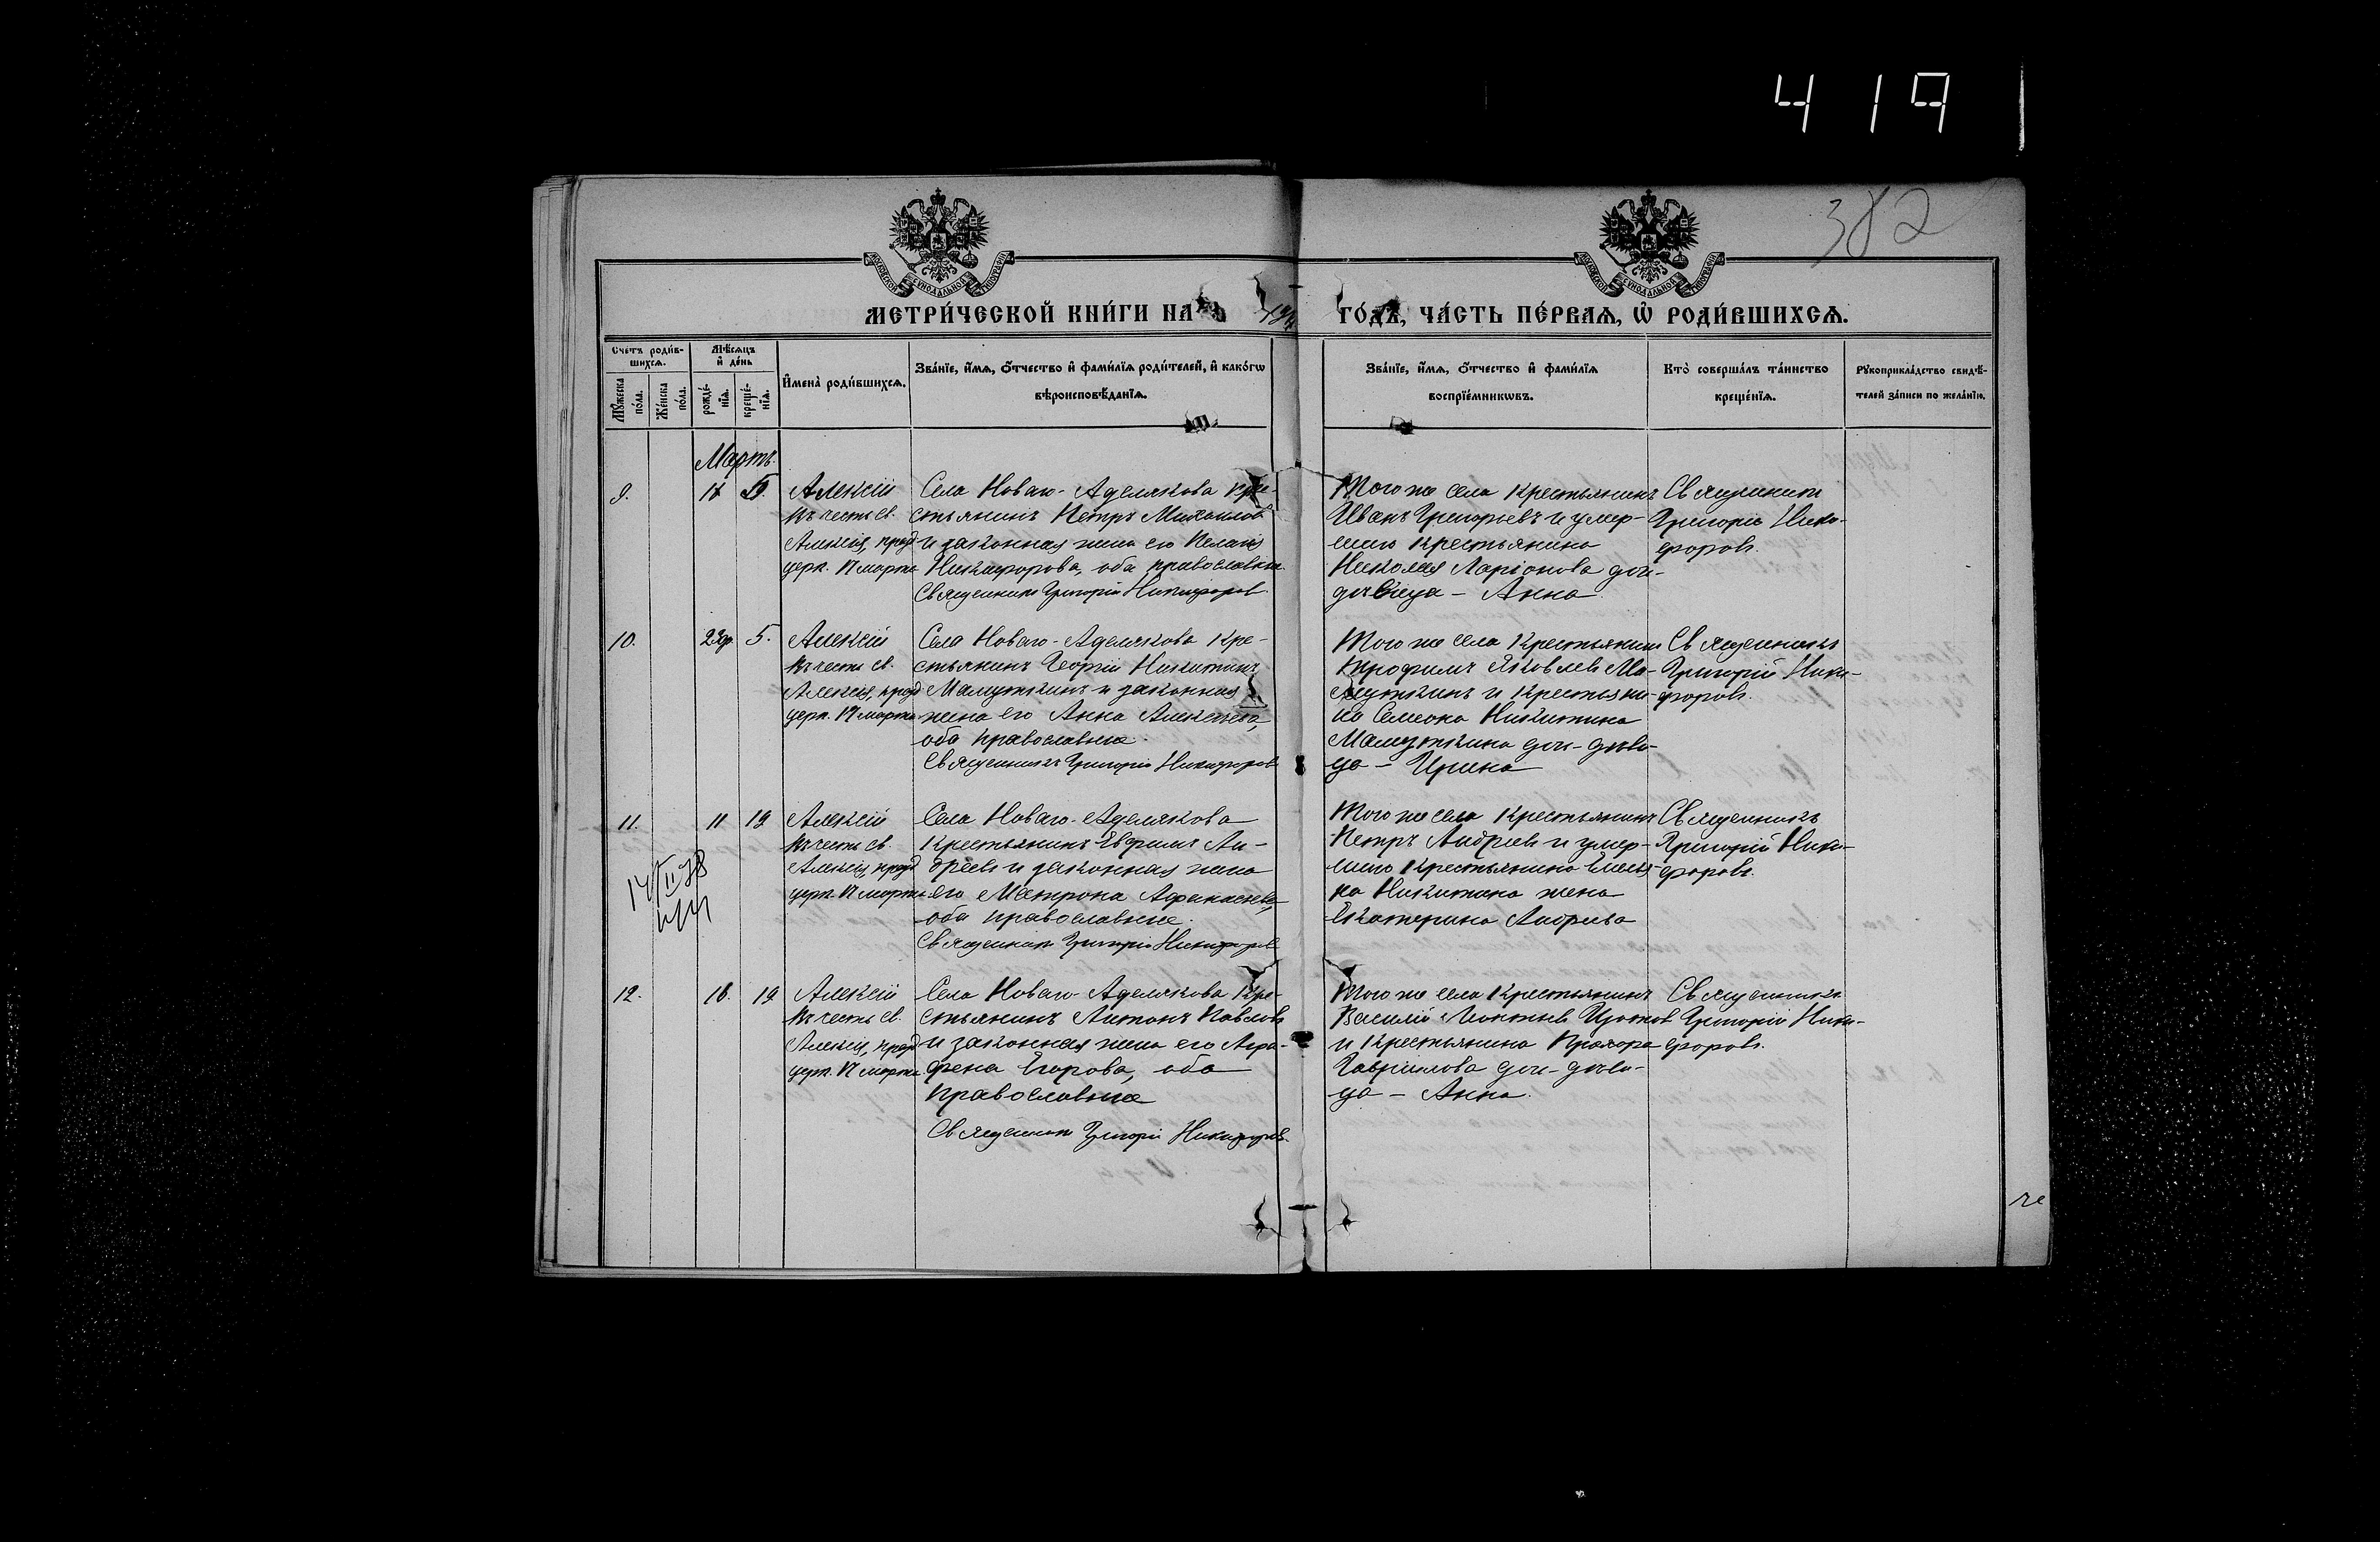 419
382
МЕТРИ́ЧЕСКОЙ КНИ́ГИ НА
ГО́ДЪ, ЧА́СТЬ ПЕ́РВАѦ, Ѡ РОДИ́ВШИХСѦ.
Сче́тъ роди́в-
шихсѧ.
Мꙋ́жеска по́ла.
Же́нска по́ла.
Мѣ́сѧцъ и де́нь
рожде́-нїѧ.
креще́-нїѧ.
Имена̀ роди́вшихсѧ.
Зва́нїе, и́мѧ, ѻ́тчество и фами́лїѧ роди́телей, и како́гѡ
вѣроисповѣ́данїѧ.
Зва́нїе, и́мѧ, ѻ́тчество и фами́лїѧ
воспрїе́мникѡвъ.
Кто̀ соверша́лъ та́инство
креще́нїѧ.
Рꙋкоприкла́дство свидѣ́-
телей за́писи по жела́нїю.
Мартъ.
9.
5.
Алексій
въ честь св.
Алексія,
церк. 17 марта
Села Новаго-Аделякова кре-
стьянинъ Петръ Михаиловъ
и законная жена его Пелагія
Никифорова, оба православные.
Священникъ Григорій Никифоровъ.
Того же села крестьянинъ
Иванъ Григорьевъ и умер-
шаго крестьянина
Николая Ларіонова доч-
дѣвица - Анна.
Священникъ
Григорій Ники-
форовъ.
10.
5.
Алексій
въ честь св.
Алексія,
церк. 17 марта
Села Новаго-Аделякова кре-
стьянинъ Георгій Никитинъ
Мамуткинъ и законная
жена его Анна Алексѣева,
оба православные.
Священникъ Григорій Никифоровъ
Того же села крестьянинъ
Трофимъ Яковлевъ Ма-
муткинъ и крестьяни-
на Семеона Никитина
Мамуткина доч-дѣви-
ца - Ирина
Священникъ
Григорій Ники-
форовъ.
11.
11
19
Алексій
въ честь св.
Алексія,
церк. 17 марта
Села Новаго-Аделякова
крестьянинъ Евфимъ Ан-
дреевъ и законная жена
его Матрона Афанасьева,
оба православные.
Священникъ Григорій Никифоровъ
Того же села крестьянинъ
Петръ Андреевъ и умер-
шаго крестьянина
Никитина жена
Екатерина Андреева
Священникъ
Григорій Ники-
форовъ.
12.
16.
19
Алексій
въ честь св.
Алексія,
церк. 17 марта
Села Новаго-Аделякова кре-
стьянинъ Антонъ Павловъ
и законная жена его Агра-
фена Егорова, оба
православные
Священникъ Григорій Никифоровъ.
Того же села крестьянинъ
Василій
и крестьянина Прохора
Гавриилова доч-дѣви-
ца - Анна.
Священникъ
Григорій Ники-
форовъ.